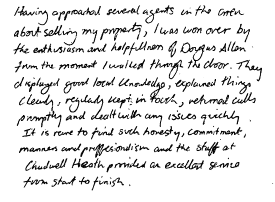 Having approached several agents in the area
about selling my property, I was won over by
the enthusiasm and helpfulness of Douglas Allen
from the moment I walked through the door. They
displayed good local knowledge, explained things
clearly, regularly kept in touch, returned calls
promptly and dealt with any issues quickly.
It is rare to find such honesty, commitment,
manners and professionalism and the staff at
Chadwell Heath provided an excellent service
from start to finish.